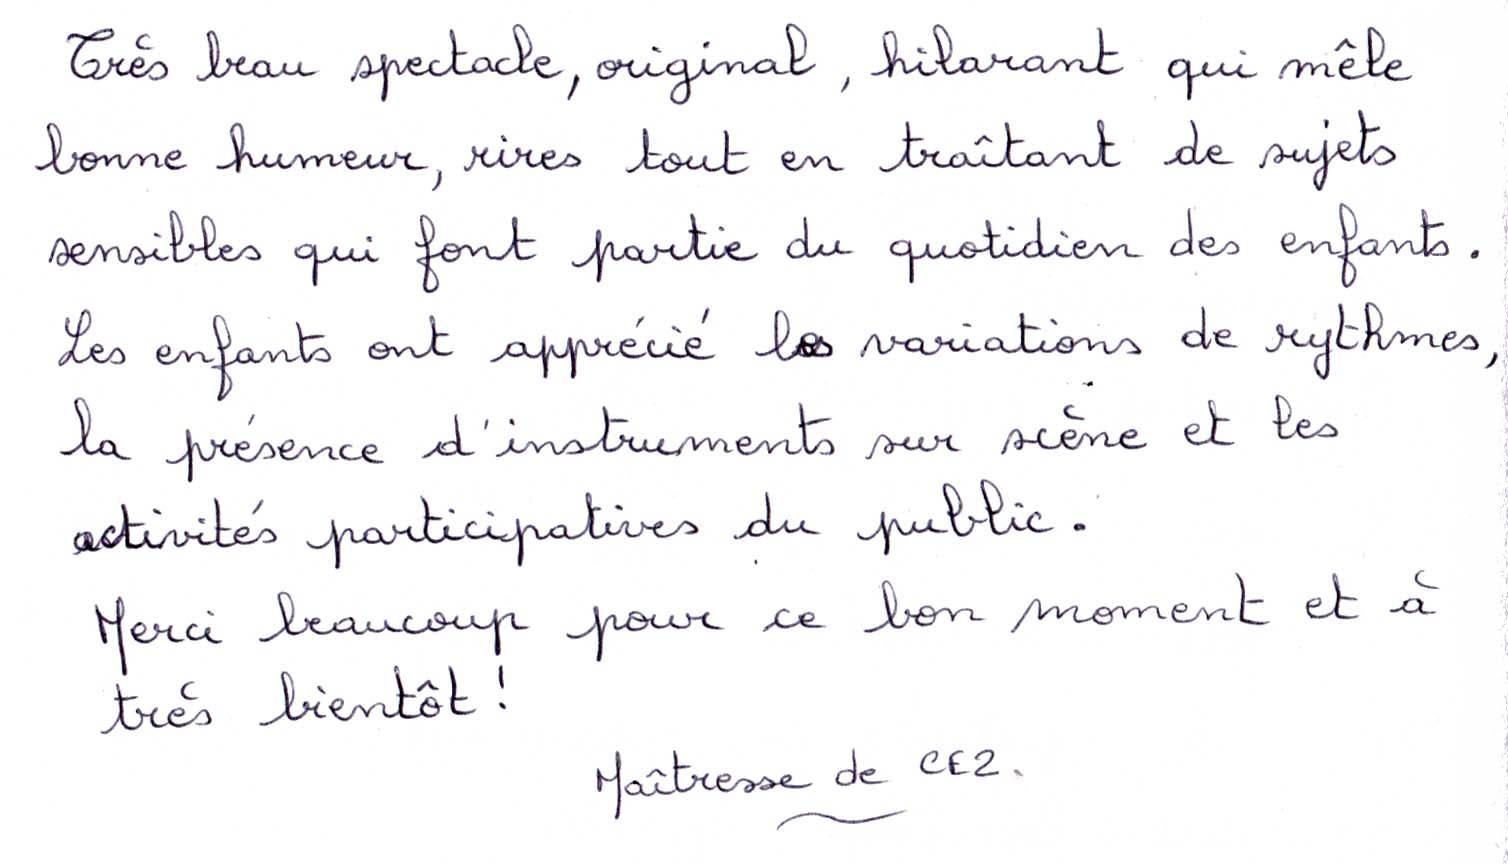 Très beau spectacle, original, hilarant qui mêle
bonne humeur, rires tout en traîtant de sujets
sensibles qui font partie du quotidien des enfants.
Les enfants ont apprécié les variations de rythmes,
la présence d'instruments sur scène et les
activités participatives du public.
Merci beaucoup pour ce bon moment et à
très bientôt !
Maîtresse de CE2.